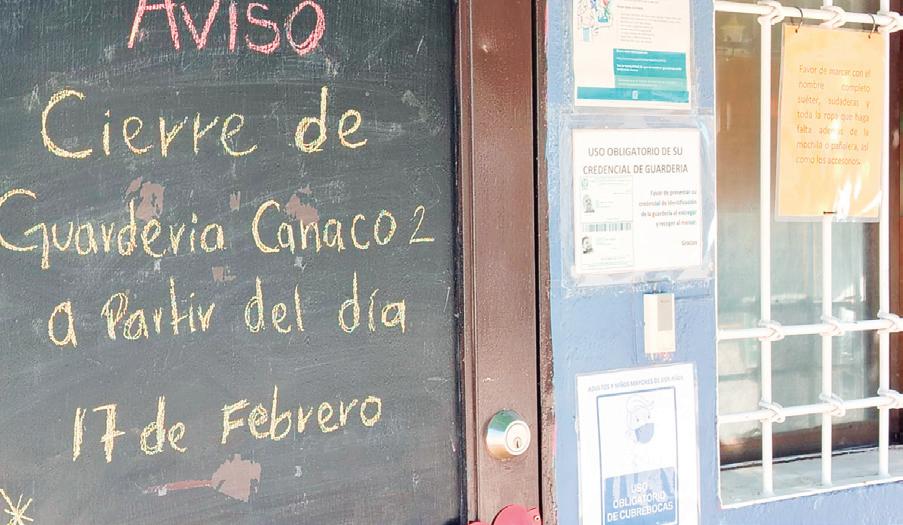 Aviso
Cierre de
Guardería Canaco 2
a Partir del día
17 de Febrero
USO OBLIGATORIO DE SU
CREDENCIAL DE GUARDERIA
Favor de presentar su
credencial de identificación
de la guardería al entregar
y recoger al menor.
Gracias
ADULTOS Y NIÑOS MAYORES DE DOS AÑOS
USO
OBLIGATORIO
DE CUBREBOCAS
Favor de marcar con el
nombre completo
suéter, sudaderas y
toda la ropa que haga
falta además de la
mochila o pañalera, así
como los accesorios.